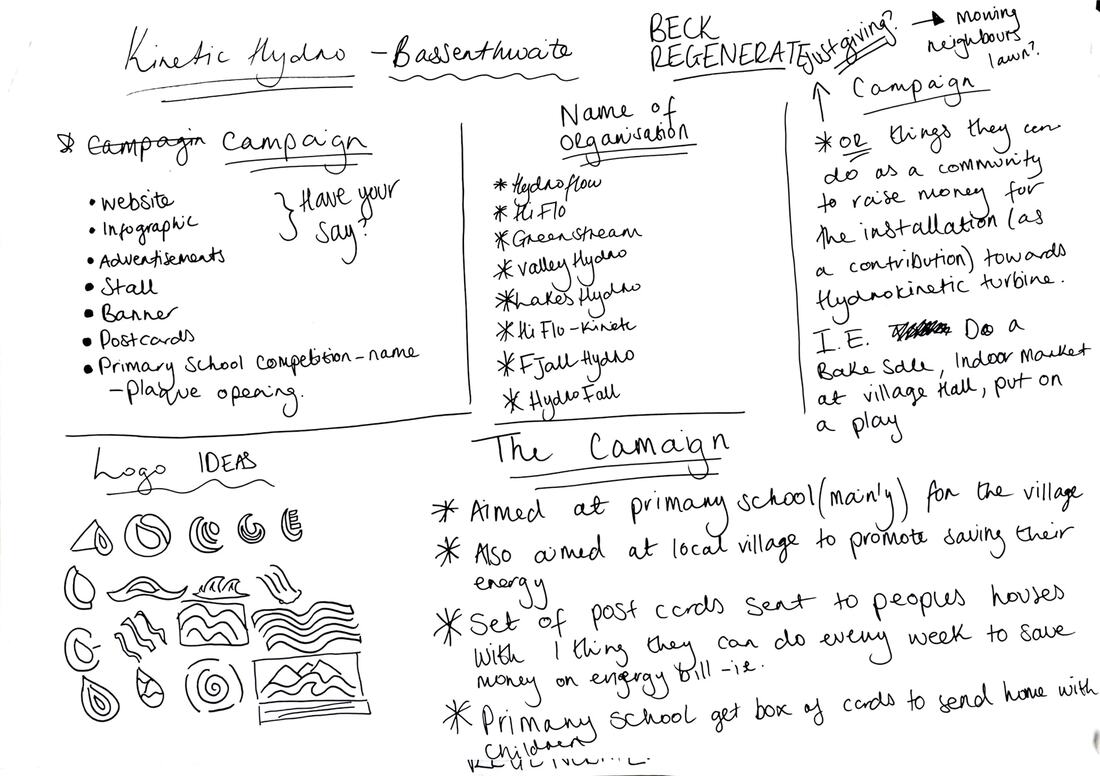 Kinetic Hydro - Bassenthwaite
BECK
REGENERATE
Just giving? → Mowing
neighbours
lawn?
* Campagin Campaign
• Website
• Infographic
• Advertisements
} Have your
say?
• Stall
• Banner
• Postcards
• Primary School Competition - name
- Plaque opening.
Name of
Organisation
* Hydroflow
* Hi Flo
* Greenstream
* Valley Hydro
* Lakes Hydro
* Hi Flo - Kinetic
* FJall Hydro
* HydroFall
Campaign
* OR things they can
do as a community
to raise money for
the installation (as
a contribution) towards
Hydrokinetic turbine.
I.E. Do a
Bake Sale, Indoor Market
at village Hall, put on
a play
Logo IDEAS
The Camaign
* Aimed at primary school (mainly) for the village
* Also aimed at local village to promote saving their
energy
* Set of post cards sent to peoples houses
with 1 thing they can do every week to save
money on engergy bill - ie.
* Primary school get box of cards to send home with
children